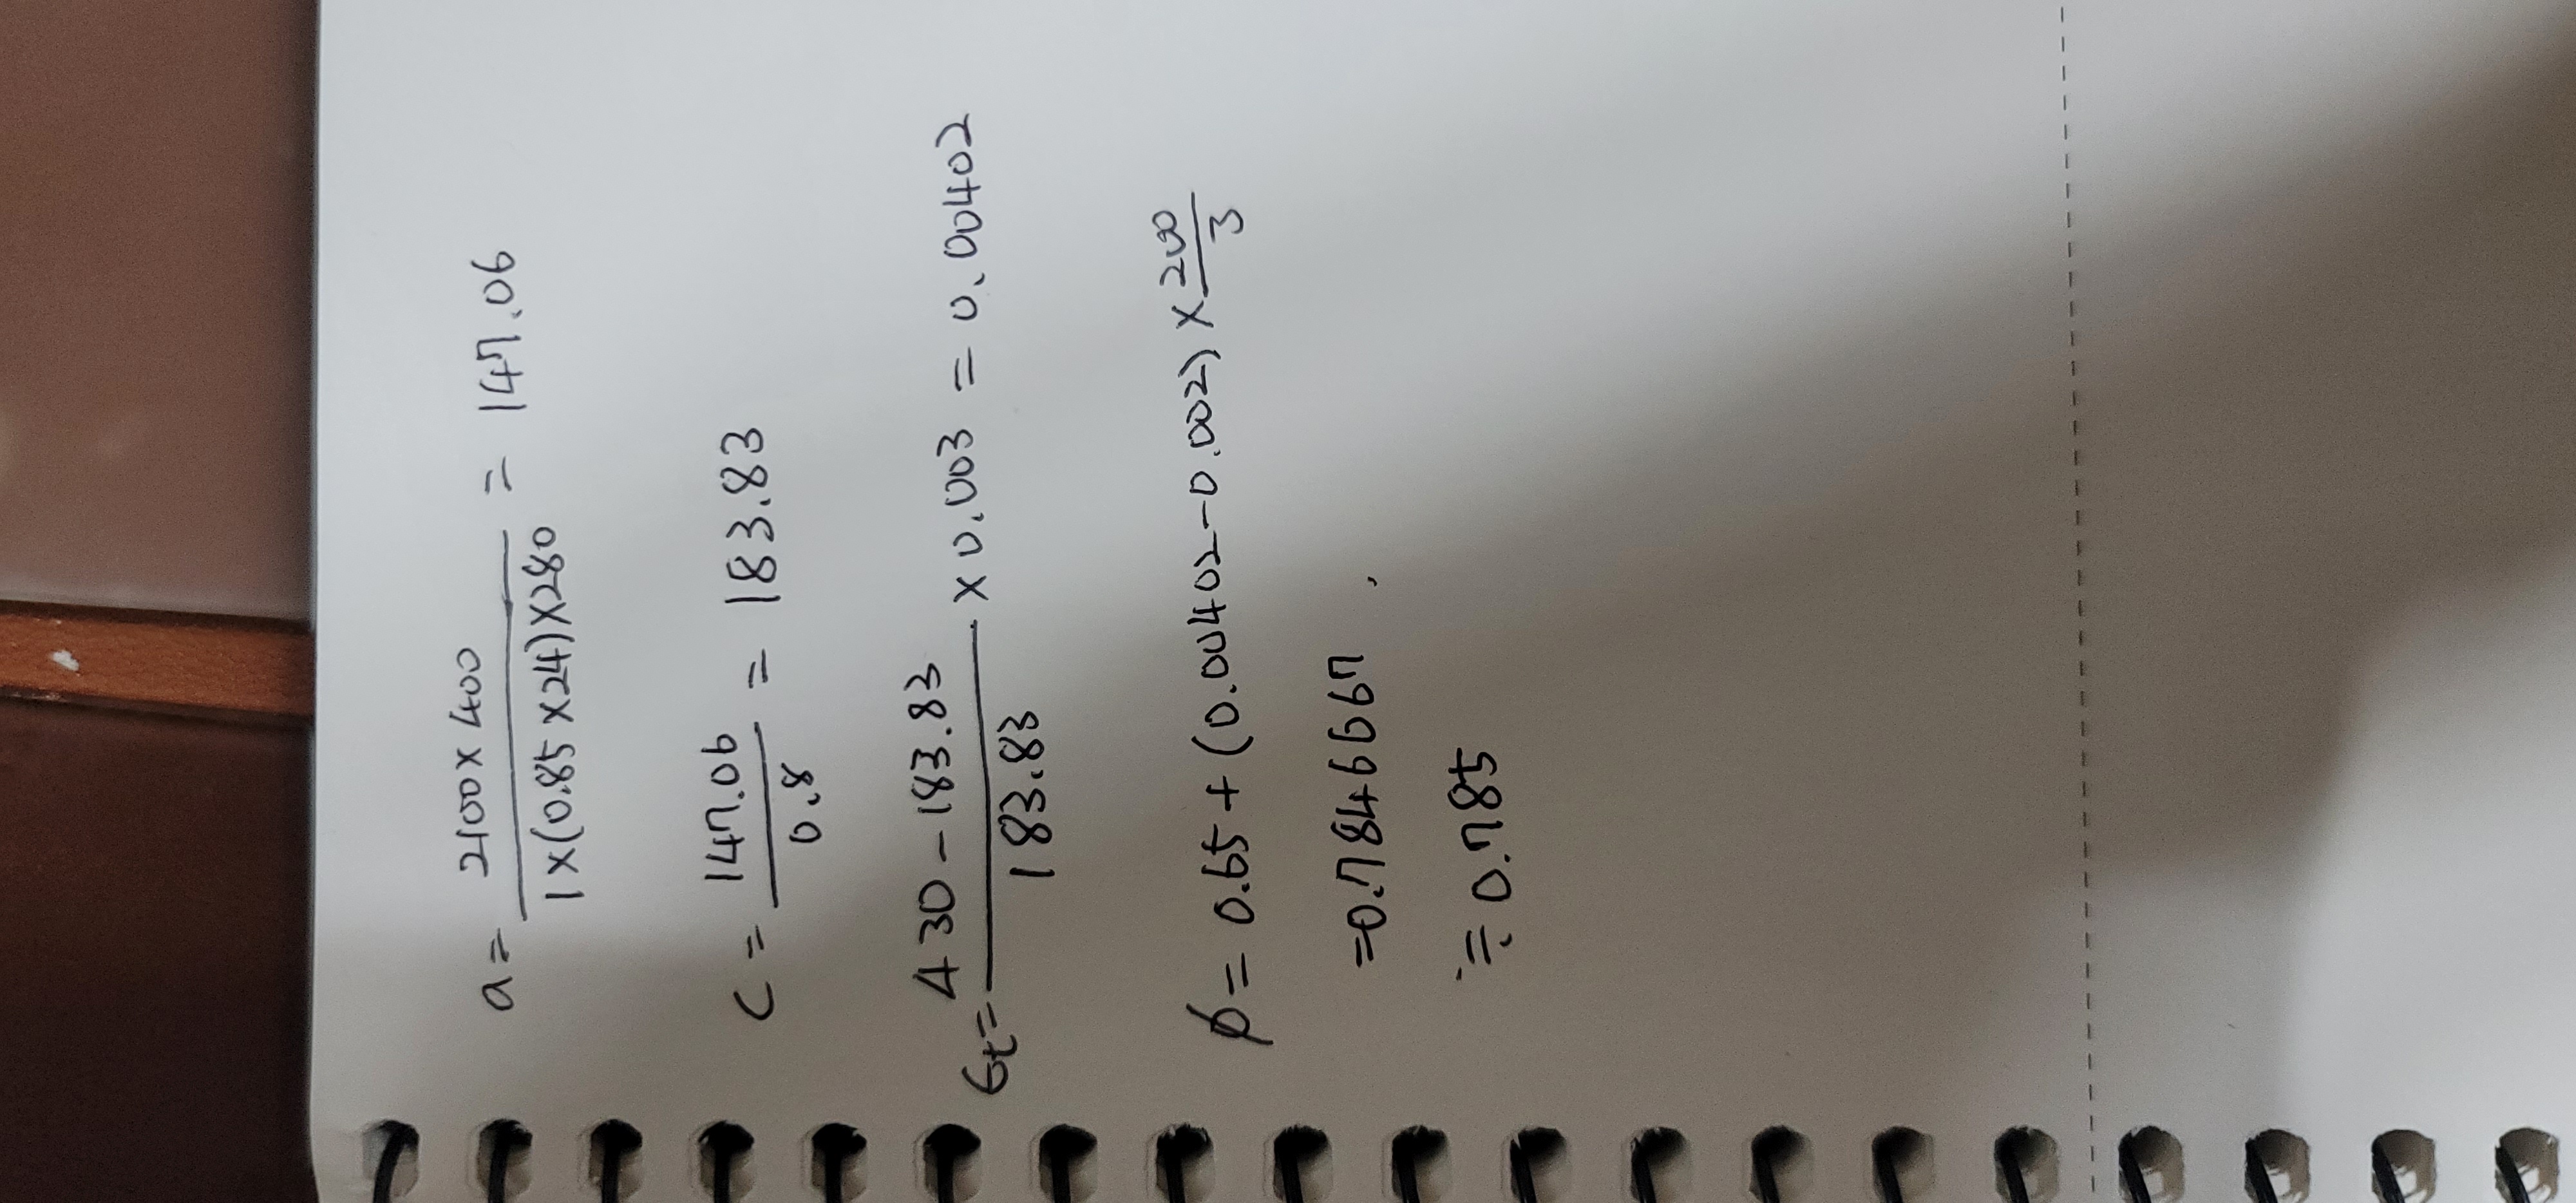 a = 2100×400 / 1×(0.85×24)×280 = 147.06
c = 147.06 / 0.8 = 183.83
εt = 430-183.83 / 183.83 × 0.003 = 0.00402
φ = 0.65 + (0.00402-0.002) × 200/3
=0.7846667
≒ 0.785